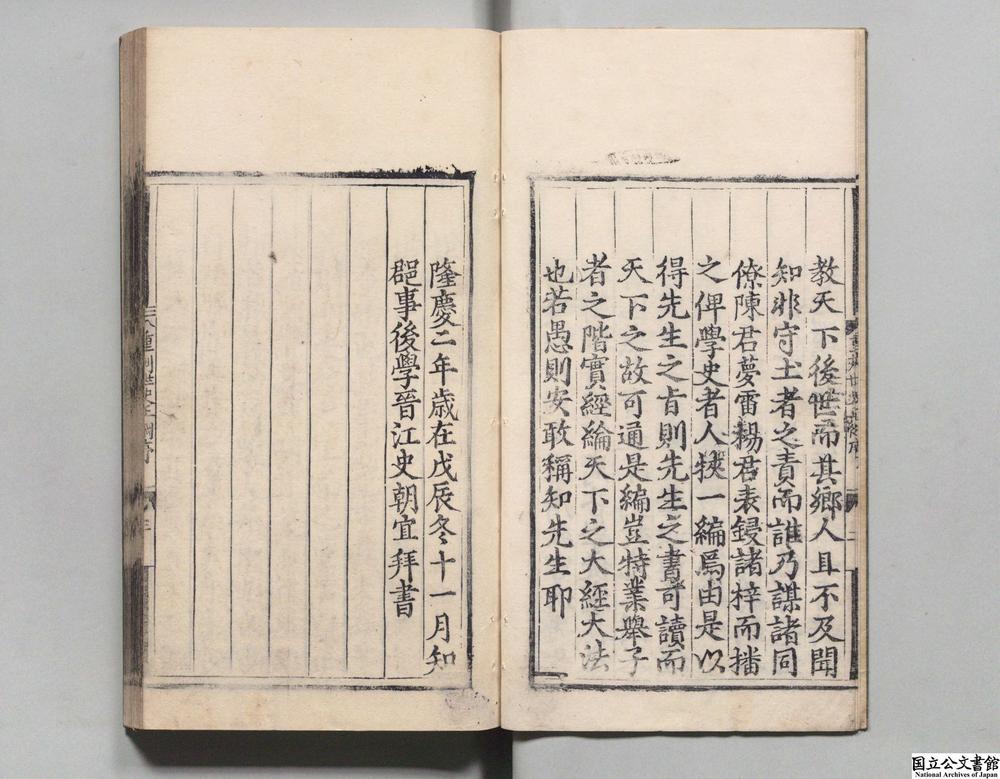 教天下後世而其鄉人且不及聞
知非守土者之責而誰乃謀諸同
僚陳君夢雷楊君表鋟諸梓而播
之俾學史者人挾一編焉由是以
得先生之旨則先生之書可讀而
天下之故可通是編豈特業舉子
者之階實經綸天下之大經大法
也若愚則安敢稱知先生耶
隆慶二年歲在戊辰冬十一月知
郡事後學晉江史朝宜拜書
国立公文書館
National Archives of Japan